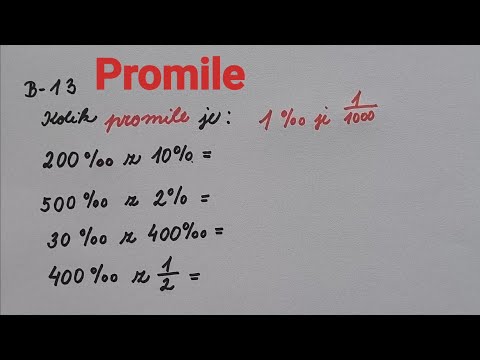 Promile
B-13
Kolik promile je: 1 ‰ je 1/1000
200 ‰ z 10% =
500 ‰ z 2% =
30 ‰ z 400‰ =
400 ‰ z 1/2 =